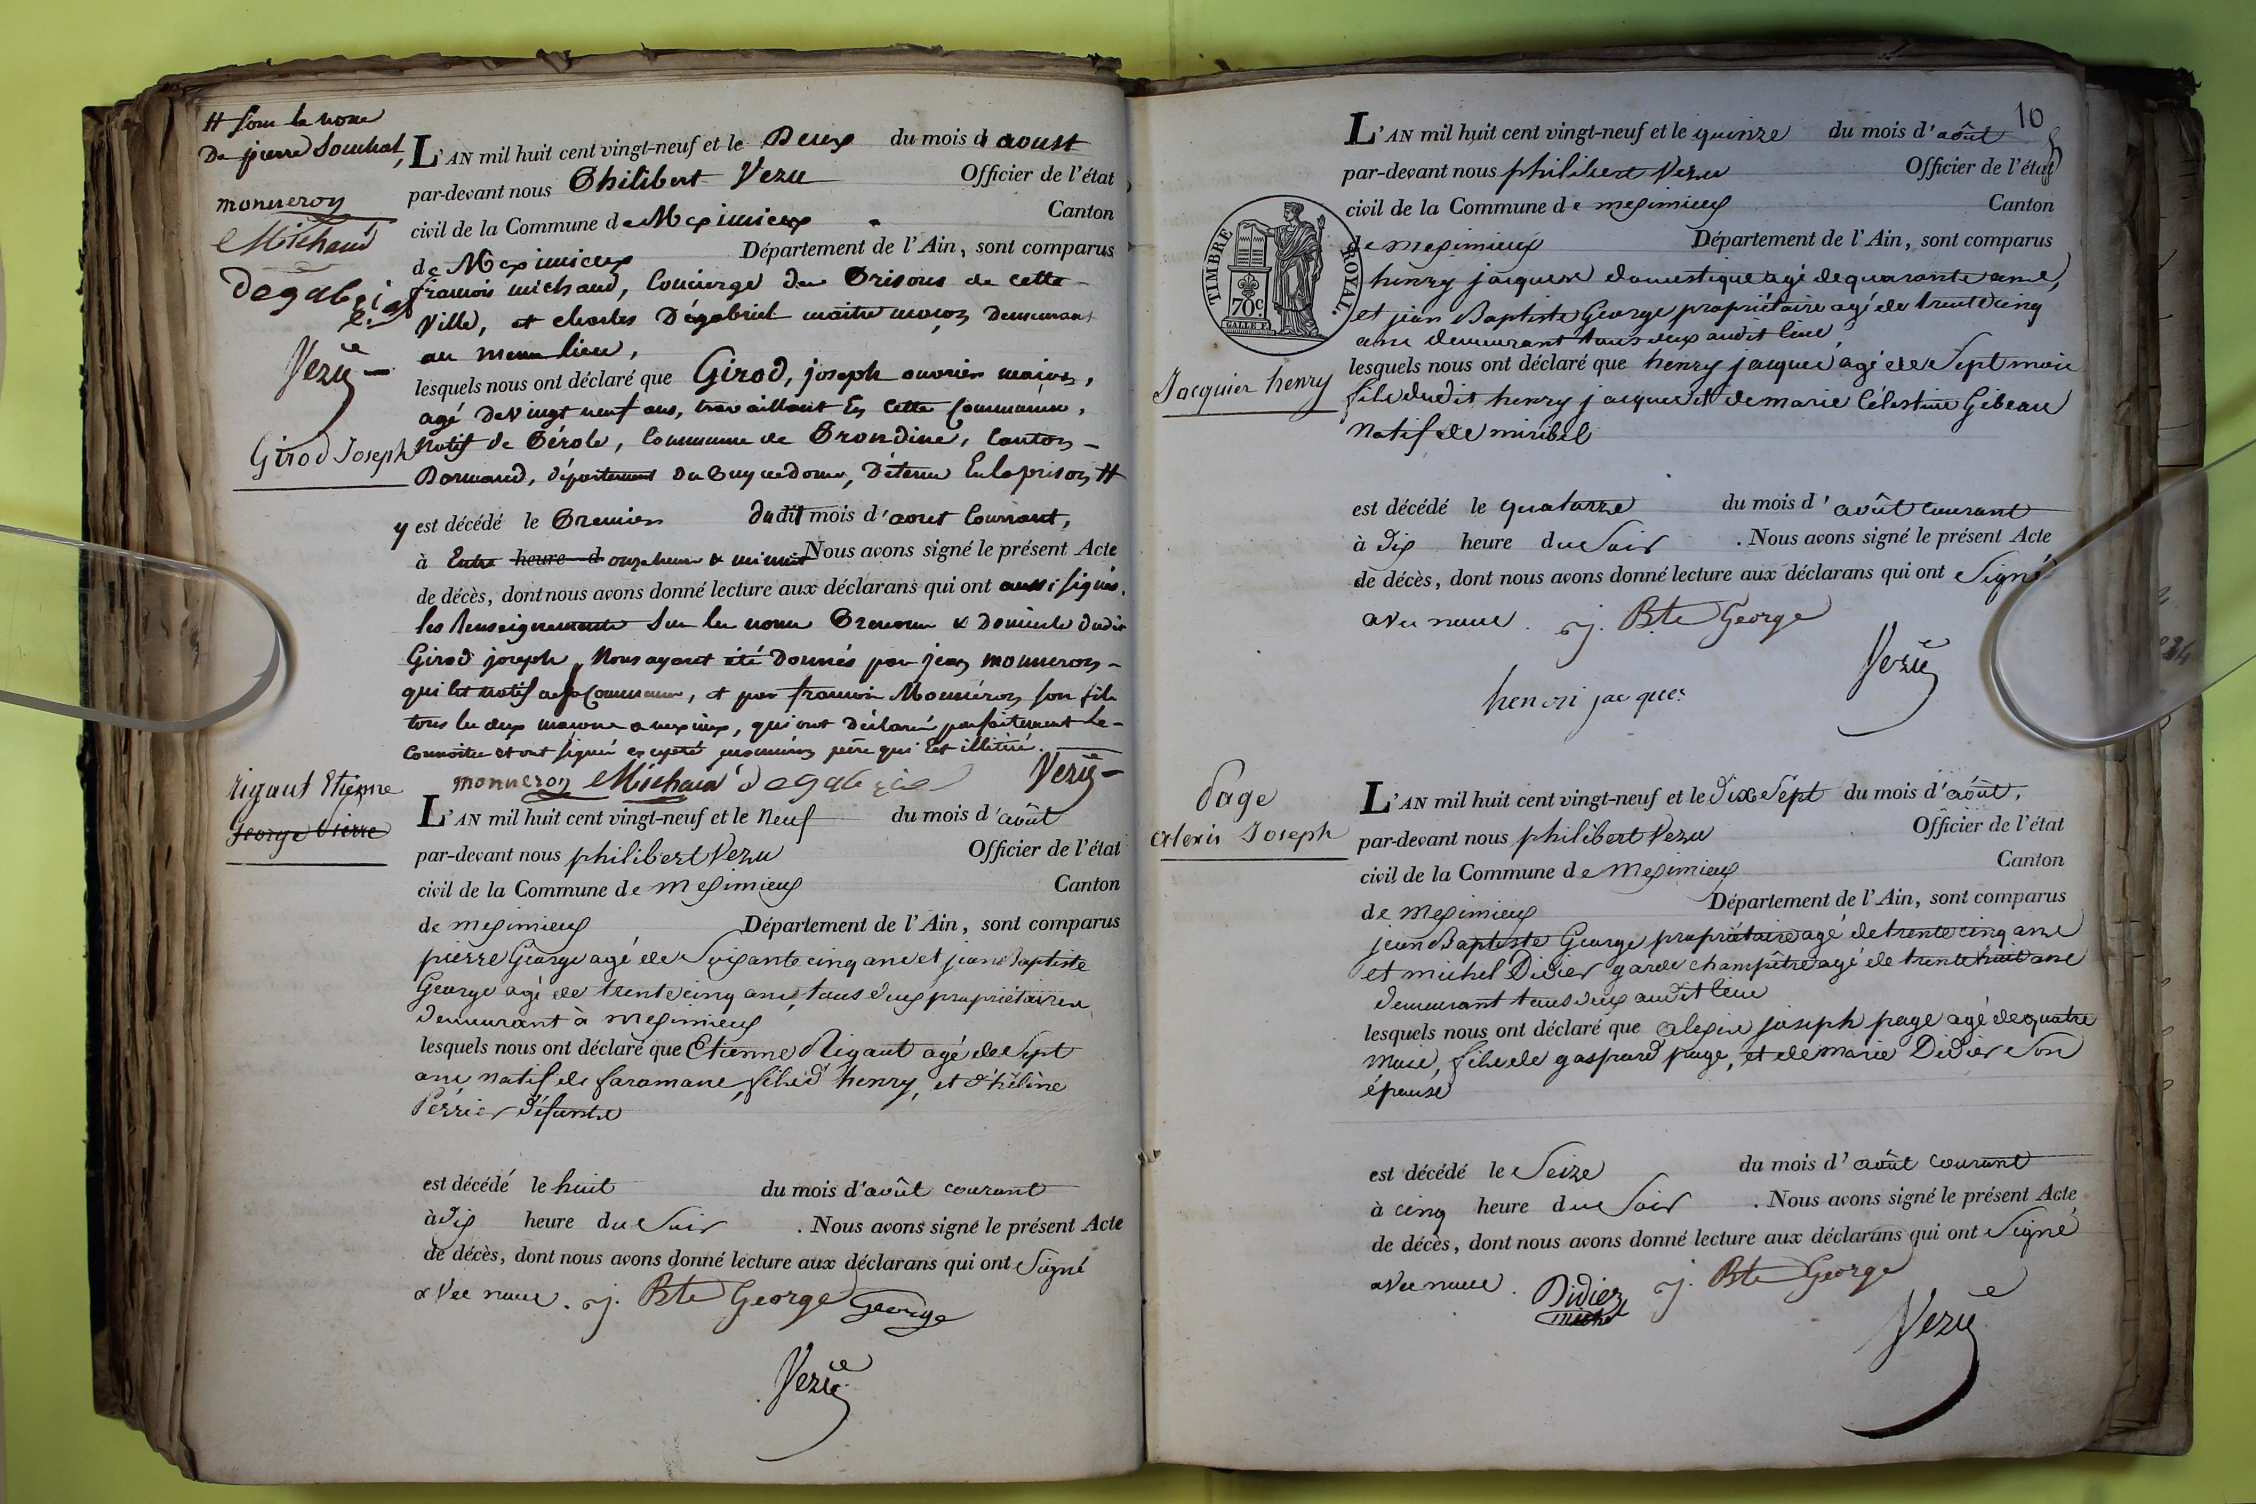 # sous le nom
De pierre Souchal,
monneron
Michaud
Degabriel
Vezu
Girod Joseph
L'AN mil huit cent vingt-neuf et le Deux du mois d'aoust
par-devant nous Philibert Vezu Officier de l'état
civil de la Commune de Meximieux Canton
de Meximieux Département de l'Ain, sont comparus
francois michaud, Concierge des Prisons de cette
Ville, et charles Dégabriel maitre maçon Demeurant
au meme lieu,
lesquels nous ont déclaré que Girod, joseph ouvrier maçon,
agé De vingt neuf ans, travaillant En Cette Commune,
natif de Pérole, Commune de Prondine, Canton
département Du Puy de dome, Détenu En la prison #
y est décédé le Premier dudit mois d'aout Courrant,
à Entre heure d onze heures & minuit Nous avons signé le présent Acte
de décès, dont nous avons donné lecture aux déclarans qui ont aussi signés.
les Renseignements Sur les noms Prenom & Domicile dudit
Girod joseph, Nous ayant été Donnés par jean monneron
qui Est natif de sa Commune, et par francois Monnéron son fils
tous les deux maçons a meximieux, qui ont Déclaré parfaitement le
Connoitre et ont signé excepté monnéron père qui Est illitéré.
monneron Michaud Degabriel Vezu
rigaut Etienne
George Pierre
L'AN mil huit cent vingt-neuf et le Neuf du mois d'août
par-devant nous philibert Vezu Officier de l'état
civil de la Commune de meximieux Canton
de meximieux Département de l'Ain, sont comparus
pierre George agé de Soixante cinq ans et jean Baptiste
George agé de trente cinq ans, tous deux propriétaires
demeurant à meximieux
lesquels nous ont déclaré que Etienne Rigaut agé de Sept
ans natif de faramans, fils d'henry, et d'hélène
Perrier défunte
est décédé le huit du mois d'août courant
à dix heure du Soir . Nous avons signé le présent Acte
de décès, dont nous avons donné lecture aux déclarans qui ont Signé
avec nous. j. Bte George George
Vezu
10
L'AN mil huit cent vingt-neuf et le quinze du mois d'août
par-devant nous philibert Vezu Officier de l'état
civil de la Commune de meximieux Canton
de meximieux Département de l'Ain, sont comparus
TIMBRE ROYAL.
70c.
henry jacques domestique agé de quarante ans,
et jean Baptiste George propriétaire agé de trente cinq
ans demeurant tous deux audit lieu
Jacquier henry
lesquels nous ont déclaré que henry jacques agé de Sept mois
fils dudit henry jacques et de marie Célestine Gibeau
natif de miribel
est décédé le quatorze du mois d'août courant
à dix heure du Soir . Nous avons signé le présent Acte
de décès, dont nous avons donné lecture aux déclarans qui ont Signé
avec nous. j. Bte George
Vezu
henori jacques
Page
alexis Joseph
L'AN mil huit cent vingt-neuf et le dix Sept du mois d'août,
par-devant nous philibert Vezu Officier de l'état
civil de la Commune de meximieux Canton
de meximieux Département de l'Ain, sont comparus
jean Baptiste George propriétaire agé de trente cinq ans
et michel Didier garde champêtre agé de trente huit ans
demeurant tous deux audit lieu
lesquels nous ont déclaré que alexis joseph page agé de quatre
mois, fils de gaspard page, et de marie Didier Son
épouse
est décédé le Seize du mois d'août courant
à cinq heure du Soir . Nous avons signé le présent Acte
de décès, dont nous avons donné lecture aux déclarans qui ont Signé
avec nous. Didier michel j. Bte George
Vezu